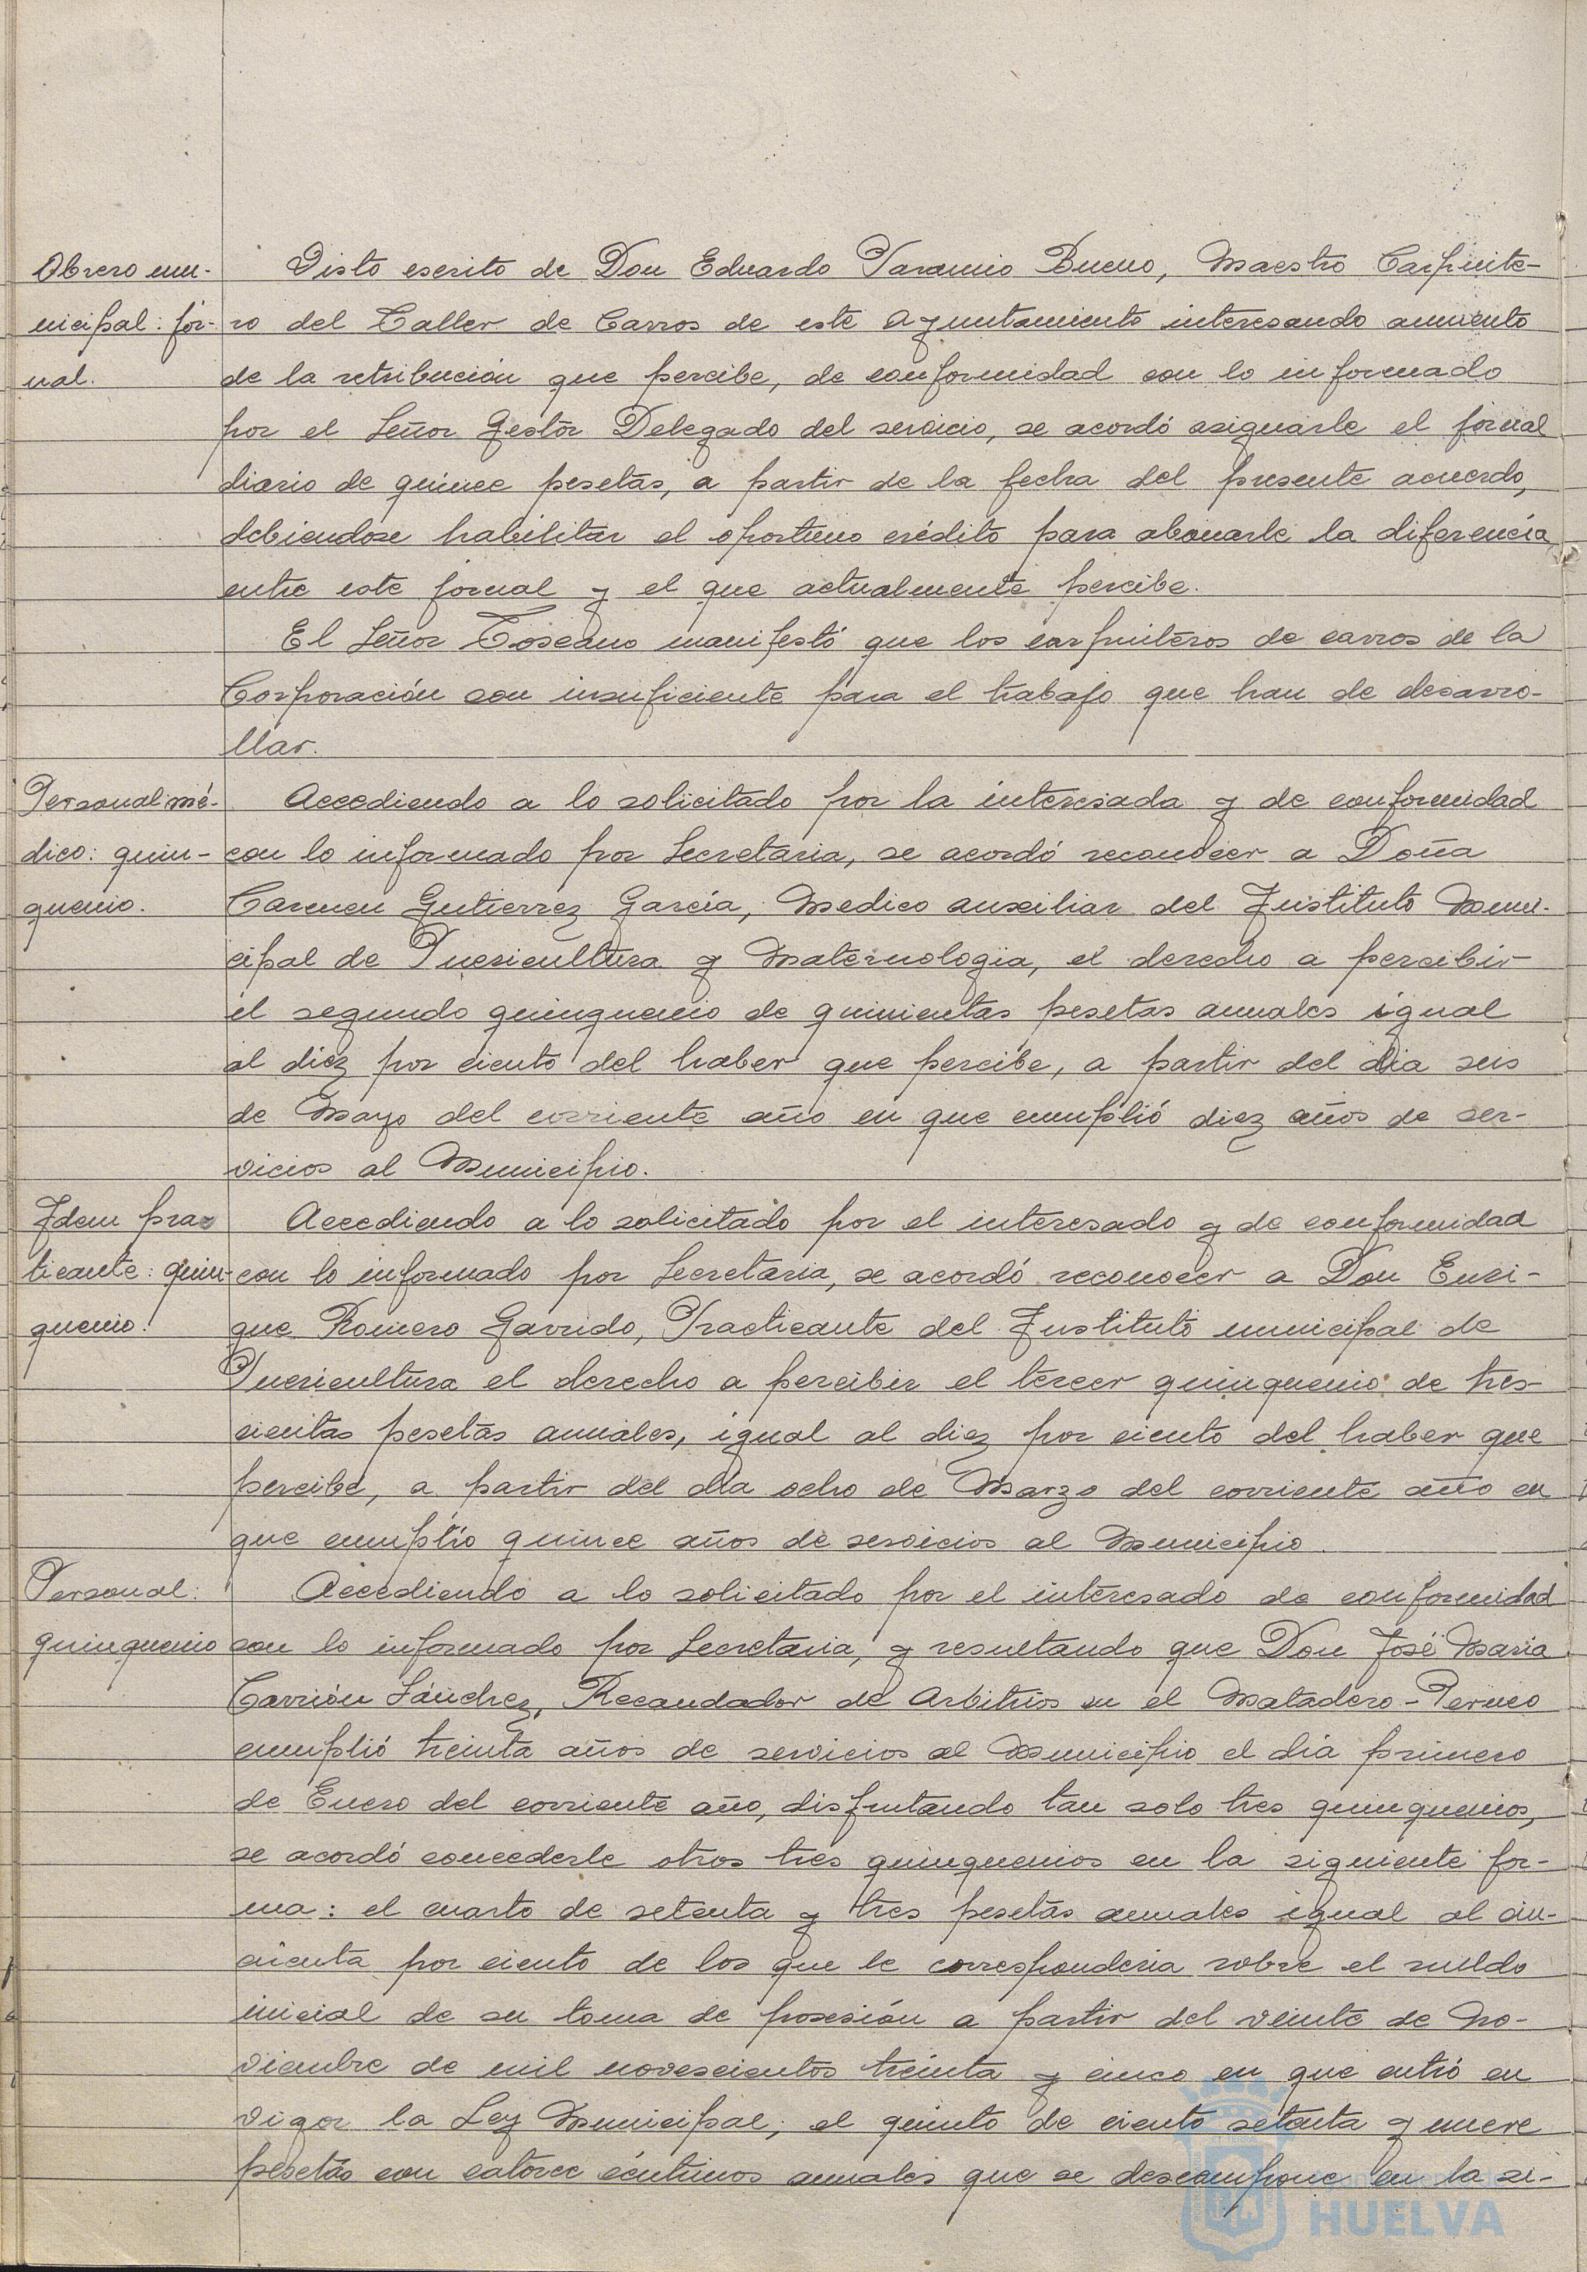 Obrero mu-
nicipal: jor-
nal.
Visto escrito de Don Eduardo Paramio Bueno, Maestro Carpinte-
ro del Taller de Carros de este Ayuntamiento interesando aumento
de la retribución que percibe, de conformidad con lo informado
por el Señor Gestor Delegado del servicio, se acordó asignarle el jornal
diario de quince pesetas, a partir de la fecha del presente acuerdo,
debiendose habilitar el oportuno crédito para abonarle la diferencia
entre este jornal y el que actualmente percibe.
El Señor Toscano manifestó que los carpinteros de carros de la
Corporación son insuficiente para el trabajo que han de desarro-
llar.
Personal mé-
dico: quin-
quenio.
Accediendo a lo solicitado por la interesada y de conformidad
con lo informado por Secretaria, se acordó reconocer a Doña
Carmen Gutierrez García, Medico auxiliar del Instituto Muni-
cipal de Puericultura y Maternologia, el derecho a percibir
el segundo quinquenio de quinientas pesetas anuales igual
al diez por ciento del haber que percibe, a partir del dia seis
de Mayo del corriente año en que cumplió diez años de ser-
vicios al Municipio.
Idem prac
ticante: quin-
quenio.
Accediendo a lo solicitado por el interesado y de conformidad
con lo informado por Secretaria, se acordó reconocer a Don Enri-
que Romero Garrido, Practicante del Instituto municipal de
Puericultura el derecho a percibir el tercer quinquenio de tres-
cientas pesetas anuales, igual al diez por ciento del haber que
percibe, a partir del día ocho de Marzo del corriente año en
que cumplío quince años de servicios al Municipio.
Personal:
quinquenio
Accediendo a lo solicitado por el interesado de conformidad
con lo informado por Secretaria, y resultando que Don José Maria
Carrión Sánchez, Recaudador de Arbitrios en el Matadero-Perneo
cumplió treinta años de servicios al Municipio el día primero
de Enero del corriente año, disfrutando tan solo tres quinquenios,
se acordó concederle otros tres quinquenios en la siguiente for-
ma: el cuarto de setenta y tres pesetas anuales igual al cin-
cuenta por ciento de los que le corresponderia sobre el sueldo
inicial de su toma de posesión a partir del veinte de No-
viembre de mil novescientos treinta y cinco en que entró en
vigor la Ley Municipal; el quinto de ciento setenta y nueve
pesetas con catorce céntimos anuales que se descompone en la si-
HUELVA